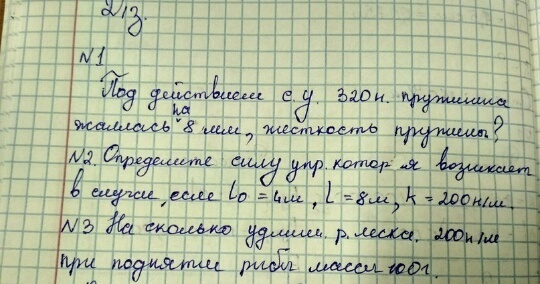 Д/з.
№1
Под действием с.у. 320н. пружинка
на
жалась 8 мм, жесткость пружины?
№2. Определите силу упр. котор я возникает
в случаи, если L0 = 4м, L = 8м, k = 200н/м.
№3 На сколько удлин. р. леска. 200н/м
при поднятии рыбы массы 100г.